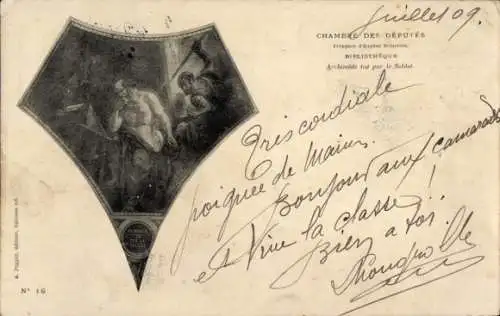 Juillet 09.
CHAMBRE DES DÉPUTÉS
Fresques d'Eugène Delacroix
BIBLIOTHÈQUE
Archimède tué par le Soldat.
Très cordiale
poignée de Main.
Bonjour aux camarades
et Vive la classe !
Bien a toi.
Nº 16